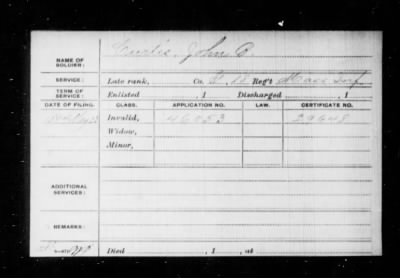 NAME OF SOLDIER: Curtis, John O.
SERVICE: Late rank, Co. Reg't Mass Inf
TERM OF SERVICE: Enlisted , 1 Discharged , 1
DATE OF FILING. CLASS. APPLICATION NO. LAW. CERTIFICATE NO.
Invalid, 46053 29648
Widow,
Minor,
ADDITIONAL SERVICES:
REMARKS:
Died , 1 , at